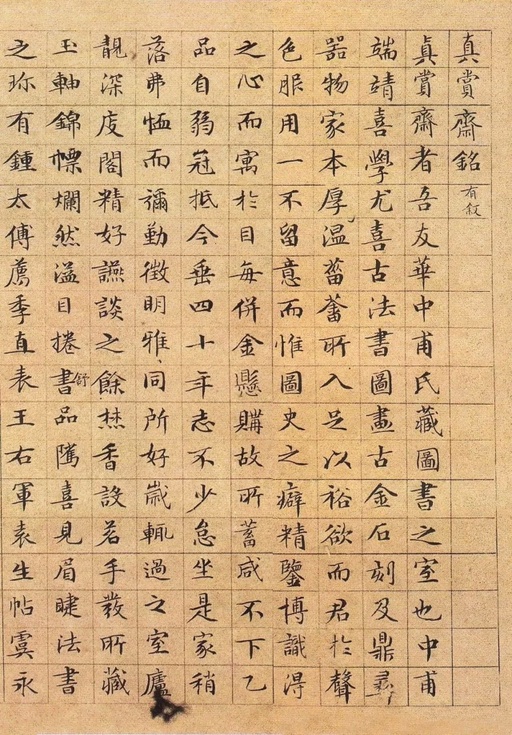 真賞齋銘 有叙
真賞齋者吾友華中甫氏藏圖書之室也中甫
端靖喜學尤喜古法書圖畫古金石刻及鼎彝
器物家本厚溫菑畬所入足以裕欲而君於聲
色服用一不留意而惟圖史之癖精鑒博識得
之心而寓於目每併金懸購故所蓄咸不下乙
品自弱冠抵今垂四十年志不少怠坐是家稍
落弗恤而彌勤徵明雅同所好歲輒過之室廬
靚深庋閣精好讌談之餘焚香設茗手發所藏
玉軸錦幖爛然溢目捲書舒品隲喜見眉睫法書
之珎有鍾太傅薦季直表王右軍袁生帖虞永